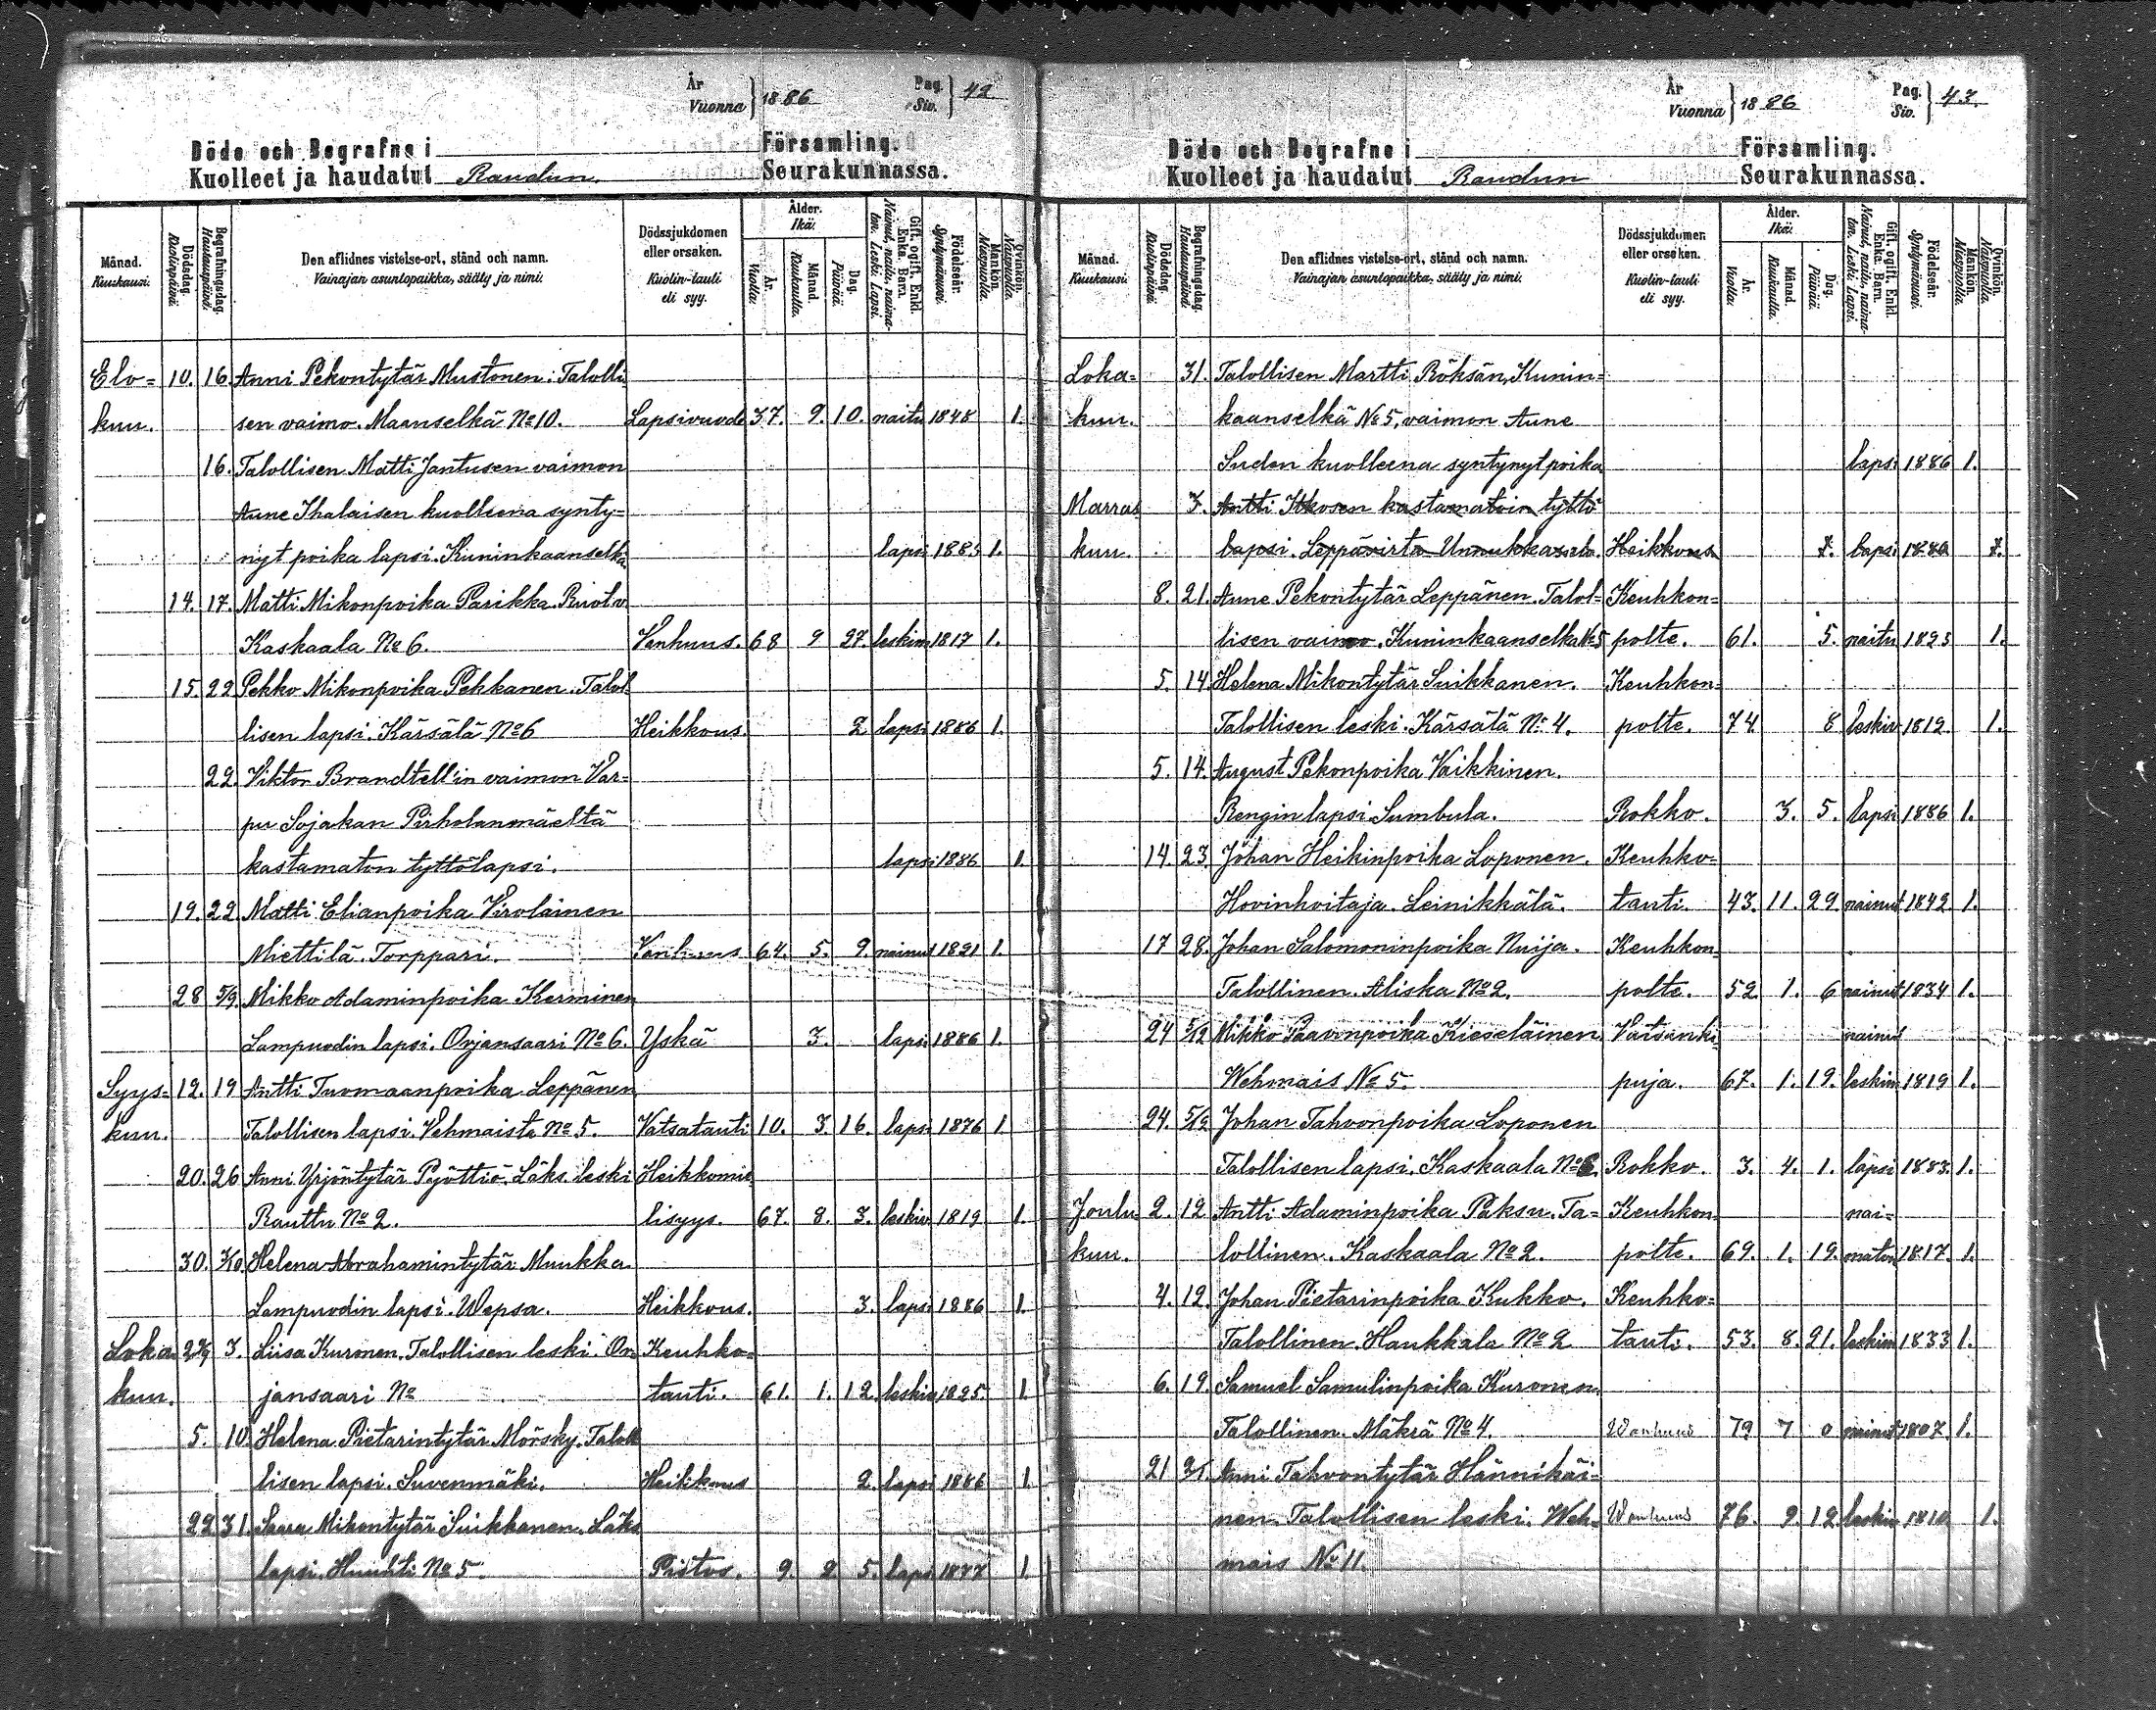 År
Vuonna } 1886
Pag.
Siv. } 42
Döde och Begrafne i Församling.
Kuolleet ja haudatut Raudun. Seurakunnassa.
Månad. Kuukausi. Dödsdag. Kuolinpäivä. Begrafningsdag. Hautauspäivä. Den aflidnes vistelse-ort, stånd och namn. Vainajan asuntopaikka, sääty ja nimi. Dödssjukdomen eller orsaken. Kuolin-tauti eli syy. Ålder. Ikä. År. Vuotta. Månad. Kuukautta. Dag. Päivää. Gift, ogift, Enkl. Enka. Barn. Nainut, naitu, naimaton. Leski. Lapsi. Födelseår. Syntymävuosi. Mankön. Miespuolia. Qvinkön. Naispuolia.
Elo= 10. 16. Anni Pekontytär Mustonen. Talolli
kuu. sen vaimo. Maanselkä No 10. Lapsivuode 37. 9. 10. naitu 1848 1.
16. Talollisen Matti Jantusen vaimon
Aune Ihalaisen kuolleena synty=
nyt poika lapsi. Kuninkaanselkä lapsi 1885 1.
14. 17. Matti Mikonpoika Parikka. Ruotu
Kaskaala No 6. Vanhuus. 68 9 27. leskim 1817 1.
15. 22 Pekko Mikonpoika Pekkanen. Talol
lisen lapsi. Kärsälä No 6 Heikkous. 2 lapsi 1886 1.
22. Viktor Brandtell'in vaimon Var=
pu Sojakan Pirholanmäeltä
kastamaton tyttölapsi. lapsi 1886 1.
19. 22. Matti Elianpoika Virolainen
Miettilä. Torppari. Vanhuus 64. 5. 9. nainut 1821 1.
28 5/9 Mikko Adaminpoika Kerminen
Lampuodin lapsi. Orjansaari No 6. Yskä 3. lapsi 1886 1.
Syys= 12. 19 Antti Tuomaanpoika Leppänen
kuu. Talollisen lapsi. Vehmaista No 5. Vatsatauti 10. 3. 16. lapsi 1876 1
20. 26 Anni Yrjöntytär Pyöttiö. Läks. leski Heikkomie
Rauttu No 2. lisyys. 67. 8. 3. leskiv 1819 1.
30. Helena Abrahamintytär Muukka
Lampuodin lapsi. Wepsa. Heikkous. 3. lapsi 1886 1.
Loka 3. Liisa Kuronen. Talollisen leski. Or= Keuhko=
kuu. jansaari No tauti. 61. 1. 12. leskiv 1825. 1.
5. 10. Helena Pietarintytär Mörsky. Talol
lisen lapsi. Suvenmäki. Heikkous 2. lapsi 1886 1.
22. 31. Saara Mikontytär Suikkanen. Läks
lapsi. Huuhti No 5. Pistos. 9. 2 5. lapsi 1877 1.
År
Vuonna } 1886
Pag.
Siv. } 43.
Döde och Begrafne i Församling.
Kuolleet ja haudatut Raudun Seurakunnassa.
Månad. Kuukausi. Dödsdag. Kuolinpäivä. Begrafningsdag. Hautauspäivä. Den aflidnes vistelse-ort, stånd och namn. Vainajan asuntopaikka, sääty ja nimi. Dödssjukdomen eller orsaken. Kuolin-tauti eli syy. Ålder. Ikä. År. Vuotta. Månad. Kuukautta. Dag. Päivää. Gift, ogift, Enkl. Enka. Barn. Nainut, naitu, naimaton. Leski. Lapsi. Födelseår. Syntymävuosi. Mankön. Miespuolia. Qvinkön. Naispuolia.
Loka= 31. Talollisen Martti Röksän, Kunin=
kuu. kaanselkä No 5, vaimon Aune
Suden kuolleena syntynyt poika lapsi 1886 1.
Marras 7. Antti Itkosen kastamatoin tyttö
kuu. lapsi. Leppävirta Unnukkasalo. Heikkous 7. lapsi
8. 21. Anne Pekontytär Leppänen. Talol= Keuhkon=
lisen vaimo. Kuninkaanselkä No 5 polte. 61. 5. naitu 1825 1.
5. 14 Helena Mikontytär Suikkanen. Keuhkon=
Talollisen leski. Kärsälä No 4. polte. 74. 8 leskiv 1812. 1.
5. 14. August Pekonpoika Vaikkinen.
Rengin lapsi Sumbula. Rokko. 3. 5. lapsi 1886 1.
14. 23 Johan Heikinpoika Loponen. Keuhko=
Hovinhoitaja. Leinikkälä. tauti. 43. 11. 29. nainut 1842. 1.
17 28. Johan Salomoninpoika Nuija. Keuhkon=
Talollinen. Aliska No 2. polte. 52. 1. 6 nainut 1834 1.
24 5/12 Mikko Paavonpoika Kieseläinen Vatsanki nainut
Wehmais No 5. puja. 67. 1. 19. leskim 1819 1.
24. 5/12 Johan Tahvonpoika Loponen
Talollisen lapsi. Kaskaala No 6. Rokko. 3. 4. 1. lapsi 1883. 1.
Joulu 2. 12 Antti Adaminpoika Paksu. Ta= Keuhkon= nai=
kuu. lollinen. Kaskaala No 2. polte. 69. 1. 19. maton 1817. 1.
4. 12. Johan Pietarinpoika Kukko. Keuhko=
Talollinen. Haukkala No 2 tauti. 53. 8. 21. leskim 1833 1.
6. 19. Samuel Samulinpoika Kuronen
Talollinen. Mäkrä No 4. Wanhuus 79 7 0 nainut 1807. 1.
21 Anni Tahvontytär Hännikäi=
nen. Talollisen leski. Weh= Wanhuus 76. 9. 12. leskiv 1810 1.
mais No 11.